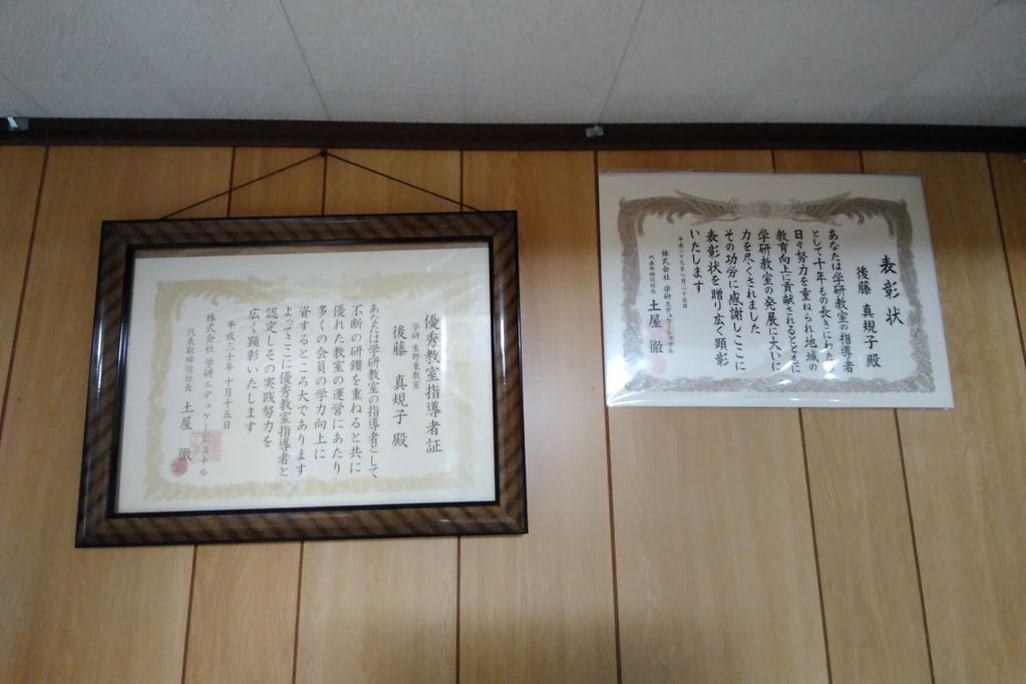 優秀教室指導者証
学研 生野東教室
後藤 真規子 殿
あなたは学研教室の指導者として
不断の研鑽を重ねると共に
優れた教室の運営にあたり
多くの会員の学力向上に
寄するところ大であります
よってここに優秀教室指導者と
認定しその実践努力を
広く顕彰いたします
平成三十年 十月十五日
株式会社 学研エデュケーショナル
代表取締役社長 土屋 徹
表彰状
後藤 真規子 殿
あなたは学研教室の指導者
として十年もの長きにわたり
日々努力を重ねられ地域の
教育向上に貢献されるとともに
学研教室の発展に大いに
力を尽くされました
その功労に感謝しここに
表彰状を贈り広く顕彰
いたします
平成二十九年八月二十五日
株式会社 学研エデュケーショナル
代表取締役社長 土屋 徹